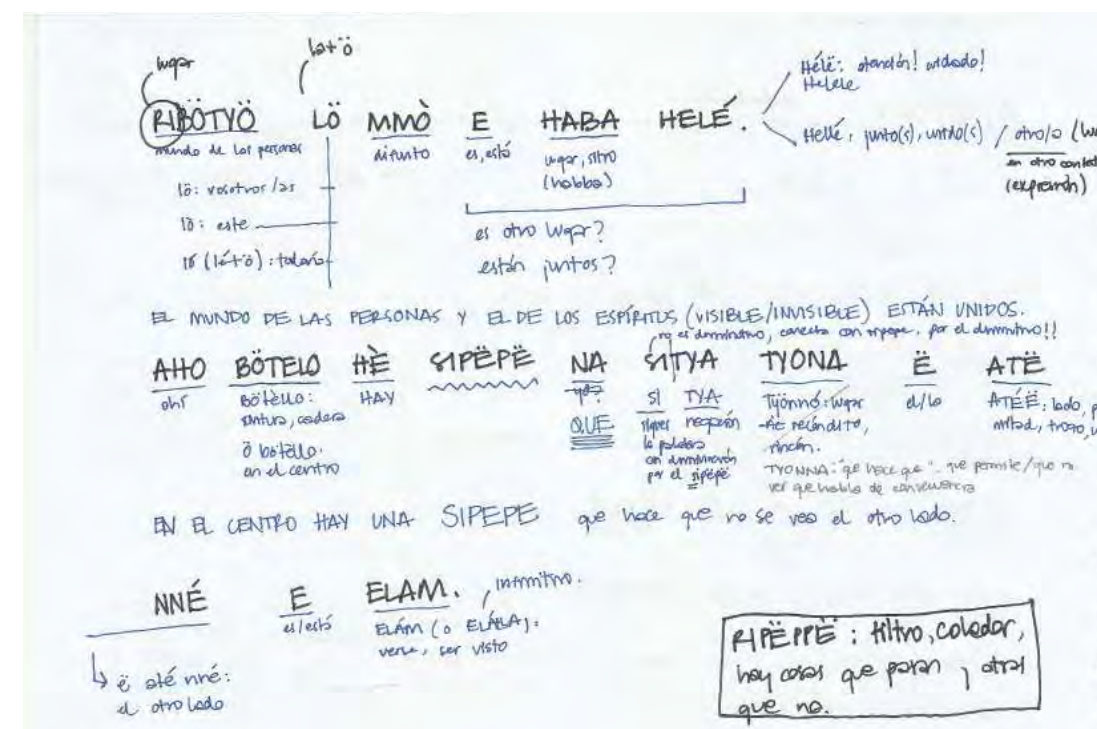 lugar
latö
RIBÖTYÖ LÖ MMÒ E HABA HELÉ.
Hélë: atención! cuidado!
Helele
mundo de las personas
difunto
es, está
lugar, sitio
(habba)
Hellé: junto(s), unido(s) / otro/a
en otro
(expresión)
lö: vosotros/as
lö: este
es otro lugar?
están juntos?
EL MUNDO DE LAS PERSONAS Y EL DE LOS ESPÍRITUS (VISIBLE/INVISIBLE) ESTÁN UNIDOS.
no es diminutivo, conecta con sipepe, por el diminutivo!!
AHO BÖTELO HÈ SIPËPË NA SITYA TYONA Ë ATË
ahí
Bötèllo:
cintura, cadera
ö botëllo:
en el centro
HAY
yo?
QUE
SI
sigues
la palabra
con diminutivo
por el sipëpë
TYA
negación
Työnnó: lugar
recóndito,
rincón.
TYONNA: "que hace que"- que permite/que no
ver que habla de consecuencia
el/lo
ATÉË: lado,
mitad, trozo,
EN EL CENTRO HAY UNA SIPEPE que hace que no se vea el otro lado.
NNÉ E ELAM.
infinitivo.
es/está
ELÁM (o ELÁLA):
verse, ser visto
ë até nné:
el otro lado
RIPËPPË: filtro, colador,
hay cosas que pasan y otras
que no.